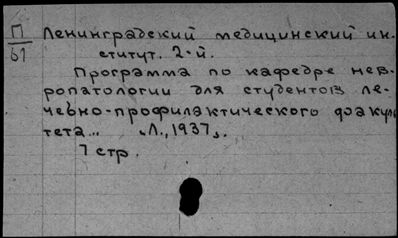 П Ленинградский медицинский ин-
61 ститут. 2-й.
Программа по кафедре нев-
ропатологии для студентов ле-
чебно-профилактического факуль
тета.. Л., 1937.
7 стр.